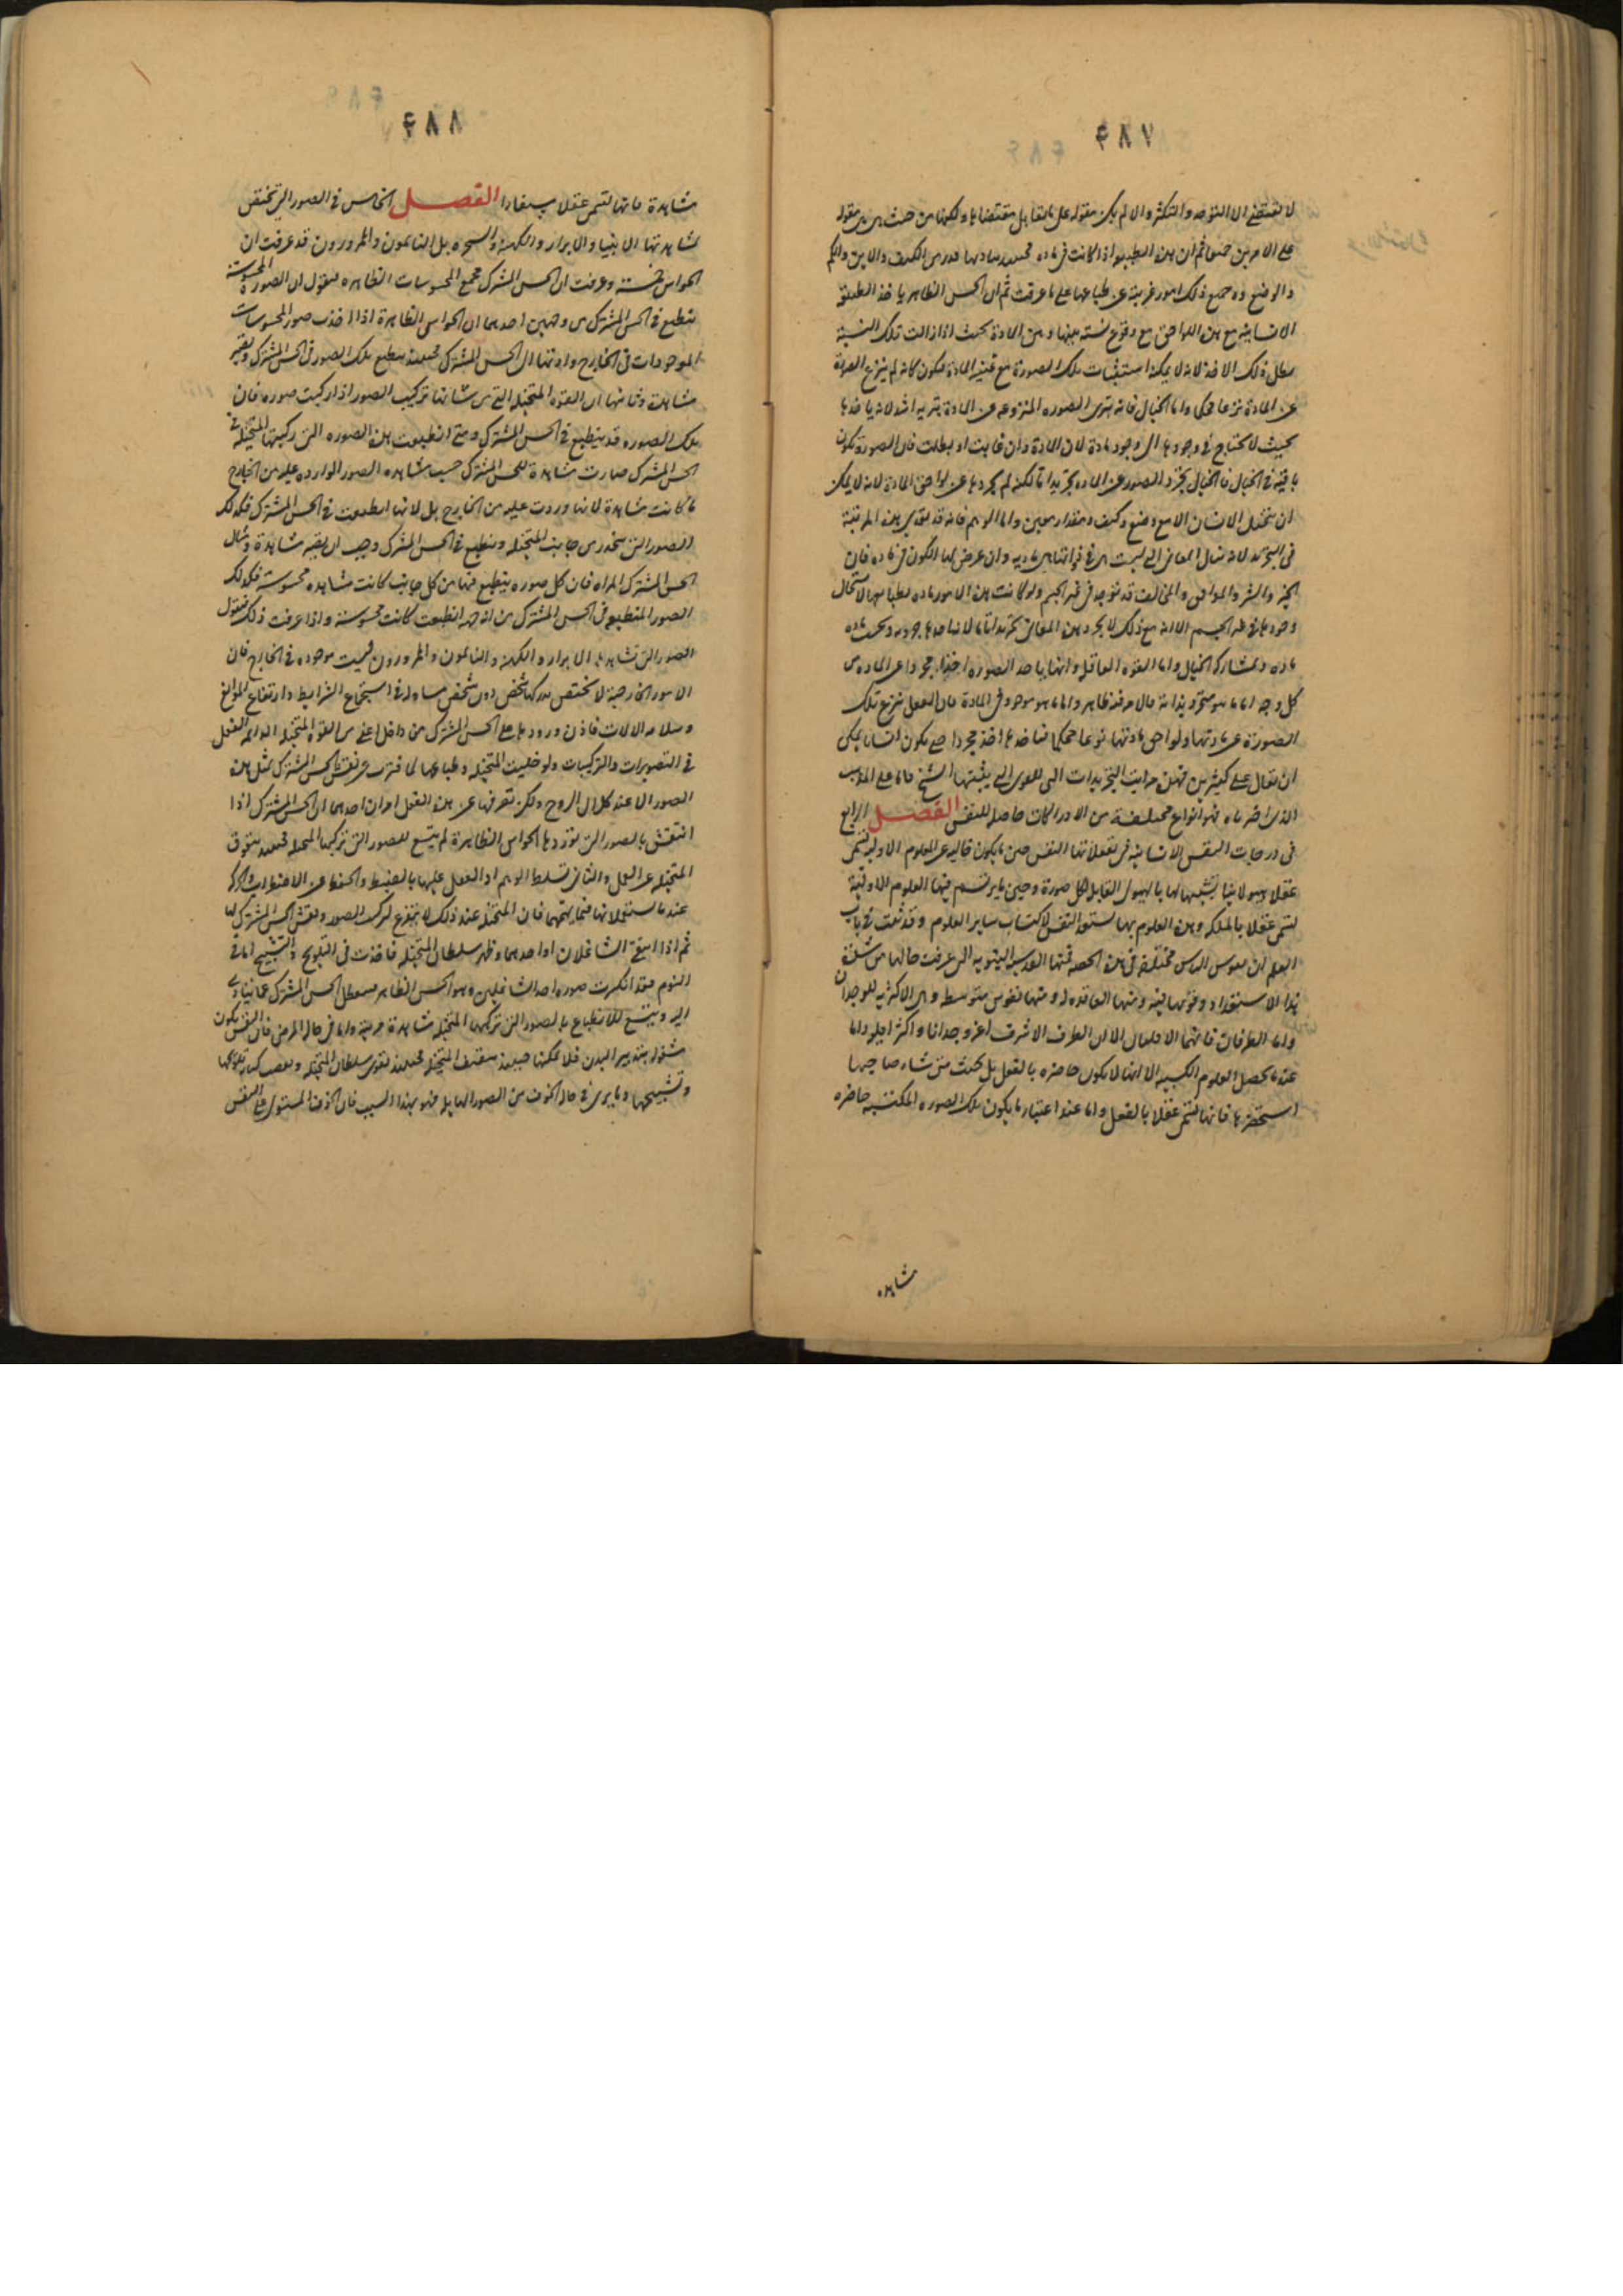 ٤٨٧
لا تقتضى الا التوحد والتكثر والا لم يكن مقوله على ما يقابل مقتضاها ولكونها من حيث هى هى مقوله
على الامرين جميعا ثم ان هذه الطبيعه اذا كانت فى ماده فحينئذ قدر من الكيف والاين والكم
والوضع وجميع ذلك امور غريبة عن طباعها على ما عرفت ثم ان الحس الظاهر ياخذ الطبيعة
الانسانية مع هذه اللواحق مع وقوع نسبة بينها وبين المادة بحيث اذا زالت تلك النسبة
بطل ذلك الاخذ لانه لا يمكنه استثبات تلك الصورة مع غيبة المادة فيكون كانه لم ينزع الصورة
عن المادة نزعا محكما واما الخيال فانه يبرى الصوره المنزوعه عن المادة تبريه اشد لانه ياخذها
بحيث لا تحتاج فى وجودها الى وجود مادة لان المادة وان غابت او بطلت فان الصورة تكون
باقية فى الخيال فالخيال يجرد الصور عن الماده تجريدا تاما لكنه لم يجردها عن لواحق المادة لانه لا يمكن
ان يتخيل الانسان الا مع وضع وكيف ومقدار معين واما الوهم فانه قد يتعدى هذه المرتبة
فى التجريد لانه ينال المعانى التى ليست هى فى ذواتها بماديه وان عرض لها الكون فى ماده فان
الخير والشر والموافق والمخالف قد توجد فى غير الجسم ولو كانت هذه الامور ماديه بطباعها لاستحال
وجودها فى غير الجسم الا انه مع ذلك لا يجرد هذه المعانى تجريدا تاما لانه ياخذها جزويه وبحسب ماده
ماده وبمشاركه الخيال واما القوه العاقله فانها ياخذ الصوره اخذا مجردا عن الماده من
كل وجه اما ما هو متجرد بذاته فالامر فيه ظاهر واما ما هو موجود فى المادة فان العقل ينزع تلك
الصورة عن مادتها ولواحق مادتها نزعا محكما فياخذها اخذ مجردا حتى يكون انسانا يمكن
ان يقال على كثيرين فهذه مراتب التجريدات التى للقوى التى يثبتها الشيخ فاما على المذهب
الذى اخترناه فهو انواع مختلفة من الادراكات حاصله للنفس الفصــل الرابع
فى درجات النفس الانسانيه فى تعقلاتها النفس حين ما يكون خاليه عن العلوم الاوليه تسمى
عقلا هيولانيا تشبيها لها بالهيولى القابله لكل صورة وحين ما يرتسم فيها العلوم الاولية
تسمى عقلا بالملكه وبهذه العلوم بها يستعد النفس لاكتساب ساير العلوم وقد ثبت فى باب
العلم ان نفوس الناس مختلفة فى هذه الحصه فمنها القدسية النبويه التى عرفت حالها من شدة
هذا الاستعداد وقوته ومنها الفاقده له ومنها نفوس متوسط وهى الاكثريه للوجدان
واما الطرفان فانهما الاقلان الا ان الطرف الاشرف اعز وجدانا واكثر اقلية واما
عند ما يحصل العلوم الكسبيه الا انها لا يكون حاضره بالفعل بل بحيث متى شاء صاحبها
استحضرها فانها تسمى عقلا بالفعل واما عند اعتبار ما يكون تلك الصوره المكتسبه حاضره
مشاهده
٤٨٨
مشاهدة فانها تسمى عقلا مستفادا الفصــل الخامس فى الصور التى تختص
بمشاهدتها الانبيا والابرار والكهنة والسحره بل النايمون والممرورون قد عرفت ان
الحواس خمسة وعرفت ان الحس المشترك مجمع المحسوسات الظاهره فنقول ان الصورة المحسوسة
تنطبع فى الحس المشترك من وجهين احدهما ان الحواس الظاهرة اذا اخذت صور المحسوسات
الموجودات فى الخارج وادتها الى الحس المشترك فحينئذ ينطبع تلك الصور فى الحس المشترك وتصير
مشاهدة وثانيها ان القوه المتخيله التى من شانها تركيب الصور اذا ركبت صوره فان
تلك الصوره قد ينطبع فى الحس المشترك ومتى انطبعت هذه الصوره التى ركبتها المتخيله فى
الحس المشترك صارت مشاهدة للحس المشترك حسب مشاهده الصور الوارده عليه من الخارج
ما كانت مشاهدة لانها وردت عليه من الخارج بل لانها انطبعت فى الحس المشترك فكذلك
الصور التى ينحدر من جانب المتخيله وينطبع فى الحس المشترك وجب ان يصير مشاهدة ومثال
الحس المشترك المراه فان كل صوره ينطبع فيها من كل جانب كانت مشاهده محسوسة فكذلك
الصور المنطبعه فى الحس المشترك من اى جهة انطبعت كانت محسوسة واذا عرفت ذلك فنقول
الصور التى تشاهدها الابرار والكهنه والنايمون والممرورون ليست موجوده فى الخارج فان
الامور الخارجية لا تختص بدركها شخص دون شخص مساو له فى استجماع الشرايط وارتفاع الموانع
وسلامه الالات فاذن ورودها على الحس المشترك من داخل اعنى من القوه المتخيله الدايمه الفعل
فى التصويرات والتركيبات ولو خليت المتخيله وطباعها لما فترت عن نقش الحس المشترك بمثل هذه
الصور الا عند كلال الروح ولكن تعرفها عن هذه الفعل امران احدهما ان الحس المشترك اذا
انتقش بالصور التى توردها الحواس الظاهرة لم يتسع للصور التى تركبها المتخيله فحينئذ يتعوق
المتخيله عن العمل والثانى تسلط الوهم او العقل عليها بالضبط والحفظ عن الاضطراب والحركة
عند ما يستعملانها فيما يهمهما فان المتخيله عند ذلك لا يتفرغ لتركيب الصور ونقش الحس المشترك بها
ثم اذا انتفى الشاغلان او احدهما ظهر سلطان المتخيله فاخذت فى التلويح والتشبيح اما فى
النوم فقد انكسرت صوره احد الشاغلين وهو الحس الظاهر فيتعطل الحس المشترك عما يتادى
اليه ويتسع للانطباع بالصور التى تركبها المتخيله مشاهدة مرئية واما فى حال المرض فان النفس يكون
مشغوله بتدبير البدن فلا يمكنها حينئذ تثقيف المتخيله فحينئذ تقوى سلطان المتخيله وتلويحها
وتشبيحها وما يرى فى حال الخوف من الصور الهايله فهو بهذا السبب فان الخوف المستولى على النفس